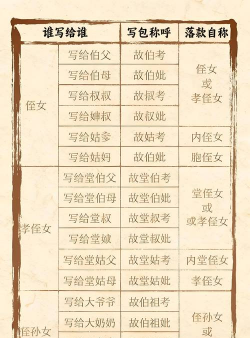 谁写给谁 写包称呼 落款自称
侄女
写给伯父 故伯考
写给伯母 故伯妣
写给叔叔 故叔考
写给婶叔 故叔妣
侄女
或
孝侄女
写给姑爹 故姑考 内侄女
写给姑妈 故伯妣 胞侄女
孝侄女
写给堂伯父 故堂伯考
写给堂伯母 故堂伯妣
写给堂叔 故堂叔考
写给堂 故堂叔妣
堂侄女
或
或孝侄女
写给堂姑父 故堂姑考 内堂侄女
写给堂姑母 故堂姑妣 孝侄女
侄孙女
写给大爷爷 故伯祖考
写给大奶奶 故伯祖妣
侄孙女
或